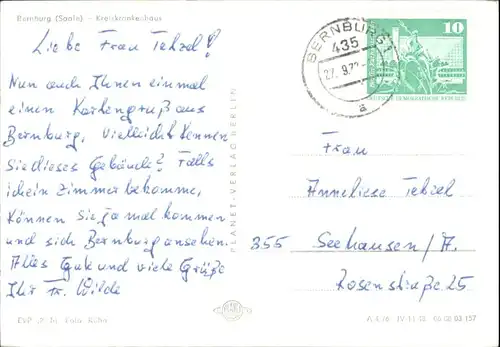 Bernburg (Saale) - Kreiskrankenhaus
Liebe Frau Tetzel!
Nun auch Ihnen einmal
einen Kartengruß aus
Bernburg, vielleicht kennen
Sie dieses Gebäude? Falls
ich ein Zimmer bekomme,
können Sie ja mal kommen
und sich Bernburg ansehen.
Alles Gute und viele Grüße
Ihr Fr. Wilde
PLANET-VERLAG BERLIN
BERNBURG 1
435
a
10
DEUTSCHE DEMOKRATISCHE REPUBLIK
Frau
Anneliese Tetzel
355 Seehausen/A.
Rosenstraße 25